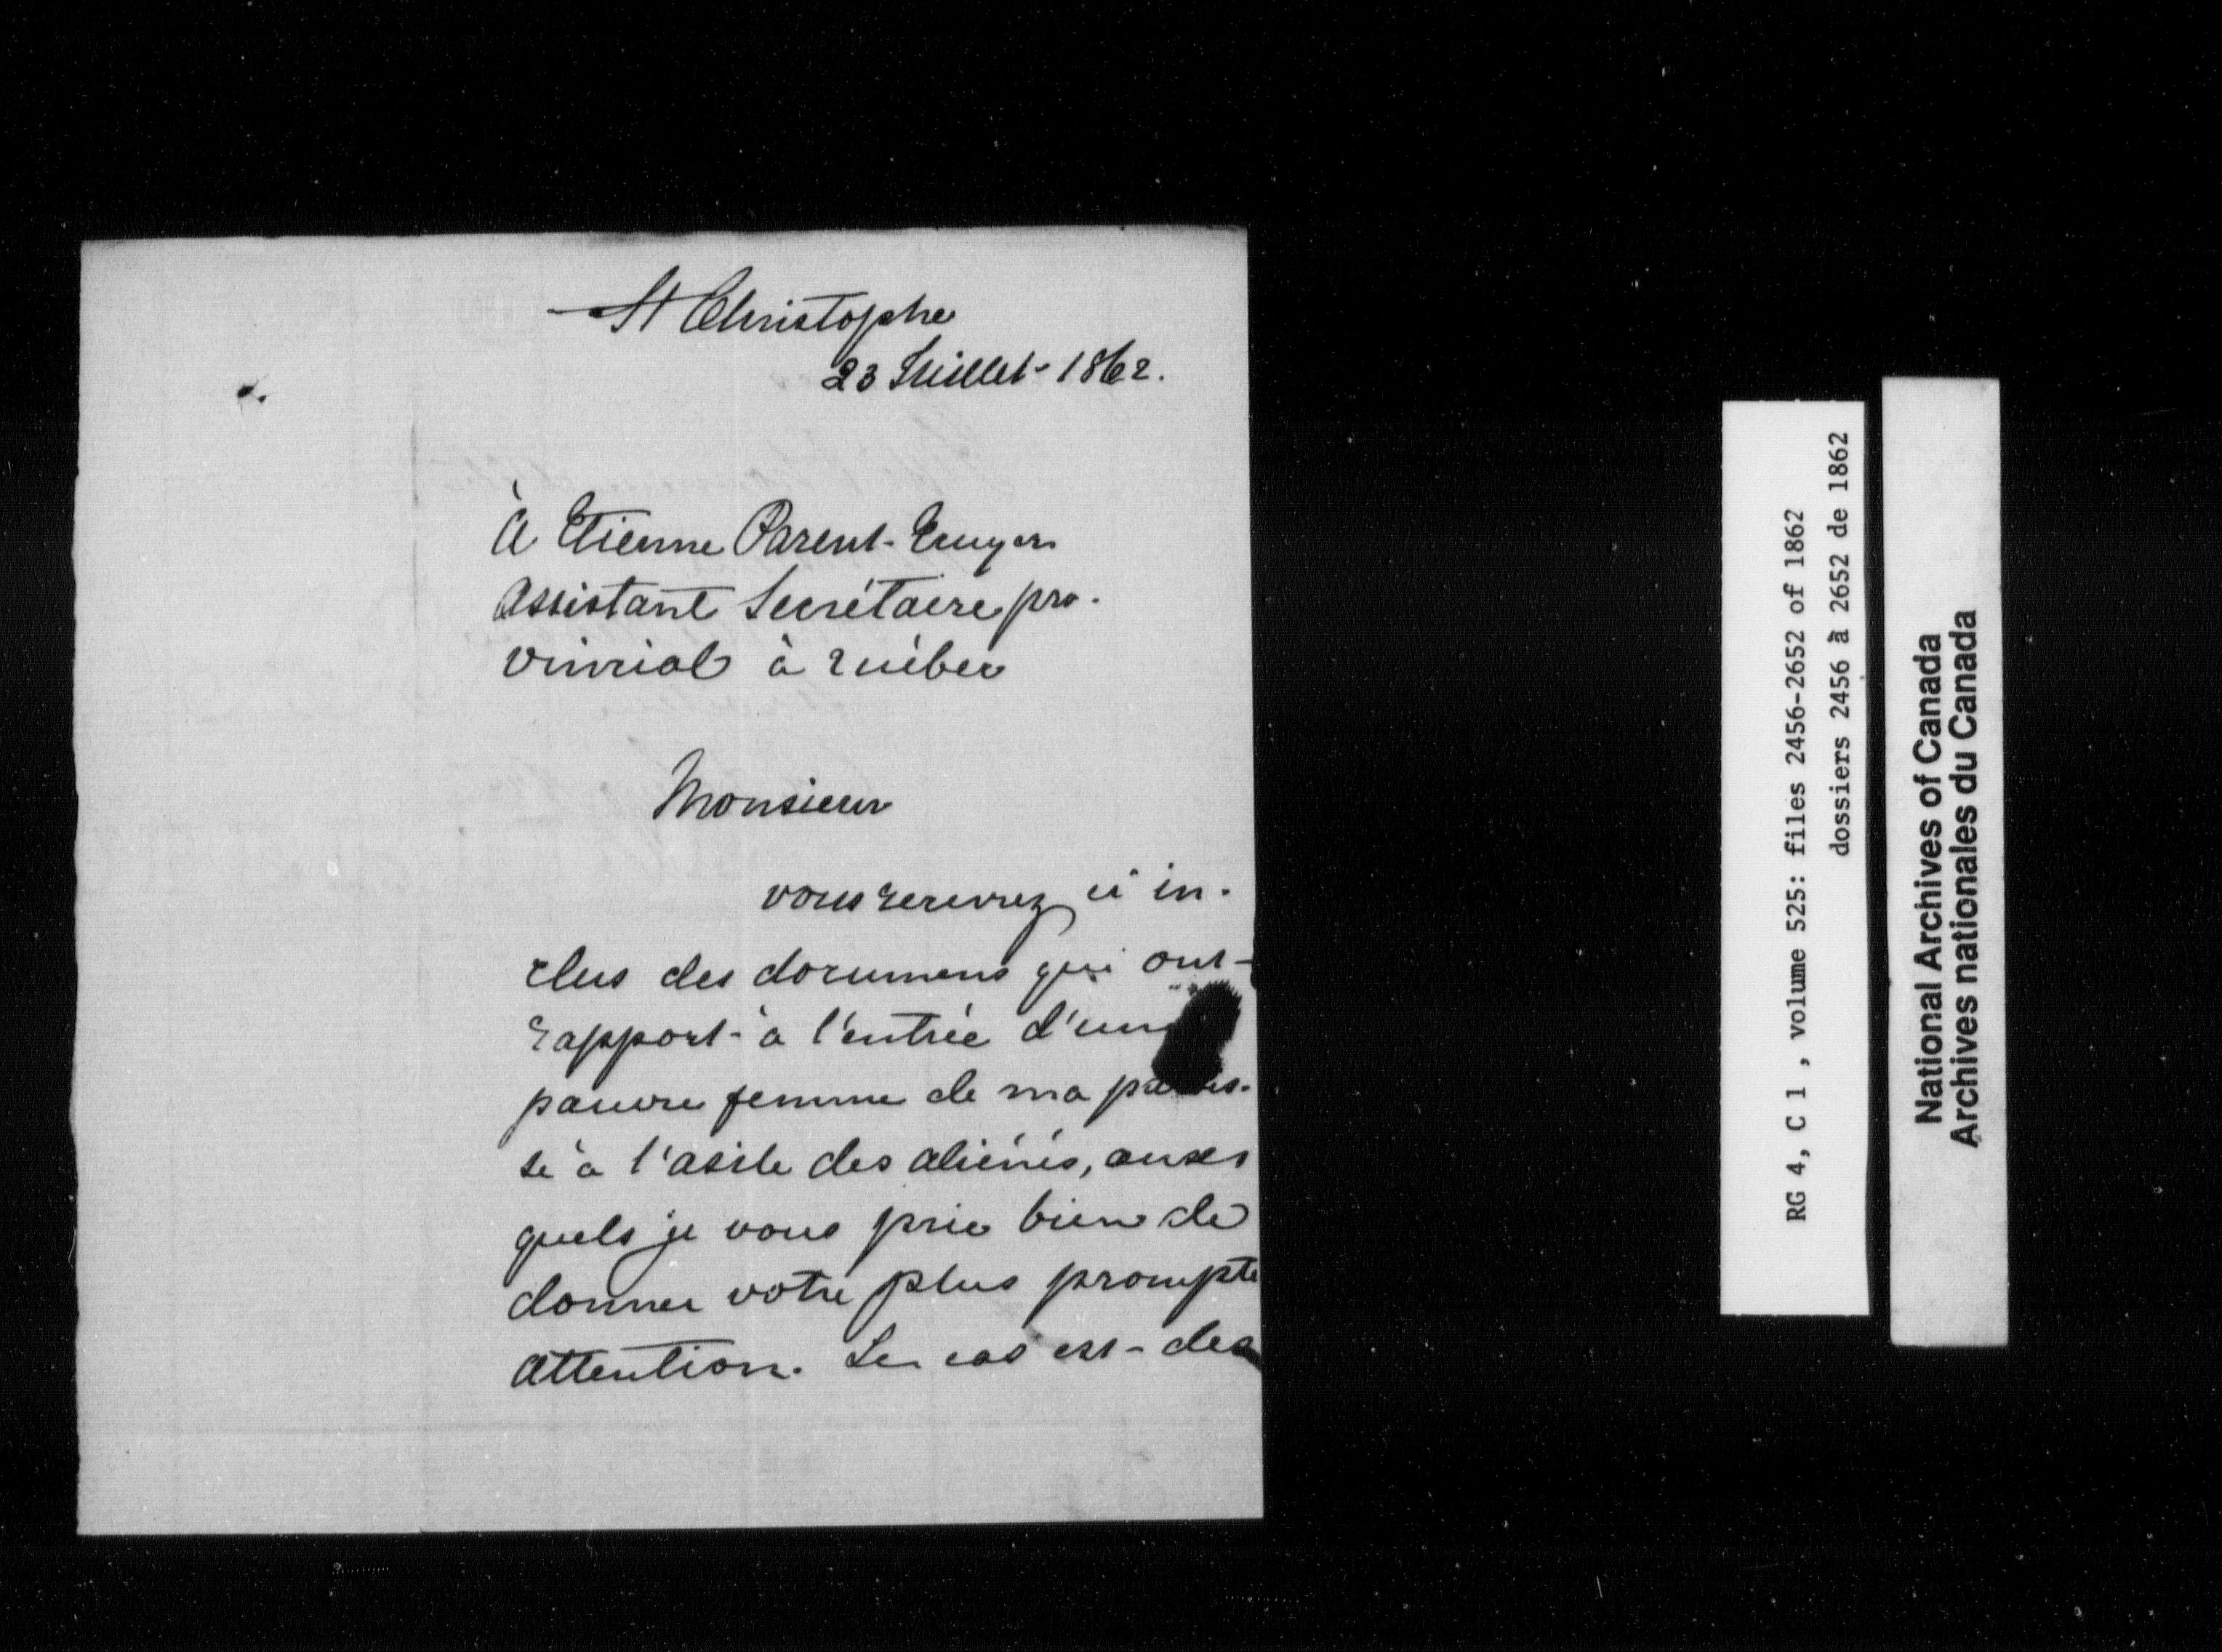 St Christophe
23 Juillet 1862.
À Etienne Parent Ecuyer
Assistant Secrétaire pro-
vincial à Québec
Monsieur
vous recevrez ci in-
clus des documens qui ont
rapport à l'entrée d'une
pauvre femme de ma parois-
se à l'asile des aliénés, aux
quels je vous prie bien de
donner votre plus prompte
attention. Le cas est des
RG 4, C 1 , volume 525: files 2456-2652 of 1862
dossiers 2456 à 2652 de 1862
National Archives of Canada
Archives nationales du Canada